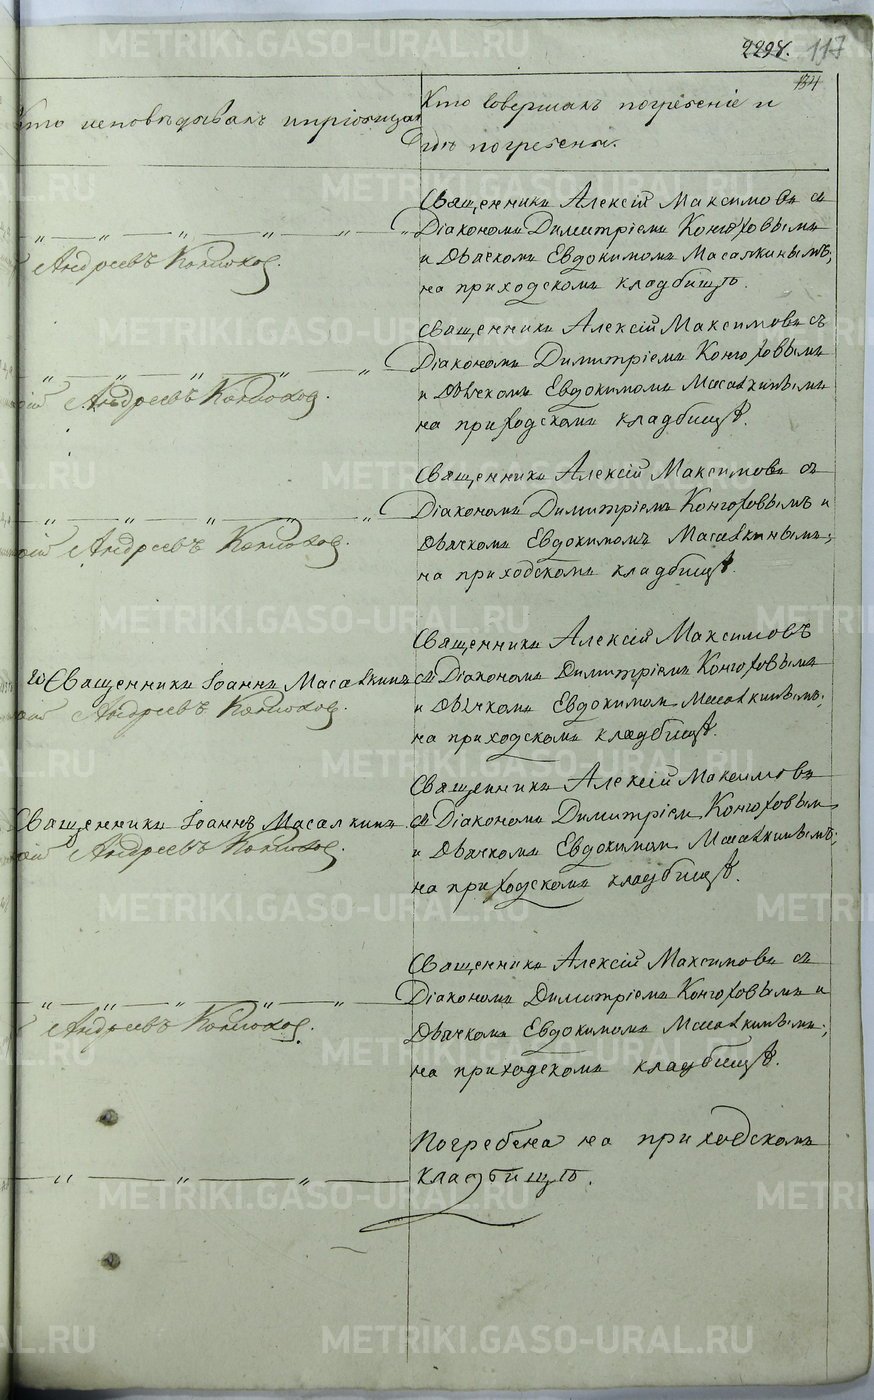 2298. 117
134
Кто исповѣдывалъ и пріобщал
Кто совершалъ погребеніе и
гдѣ погребены.
Священникъ Алексій Максимовъ съ
Діакономъ Димитріемъ Конюховымъ
и Дьячкомъ Евдокимомъ Масалкинымъ;
на приходскомъ кладбищѣ.
Андреевъ Конюхов.
Священникъ Алексій Максимовъ съ
Діакономъ Димитріемъ Конюховымъ
и Дьячкомъ Евдокимомъ Масалкинымъ
на приходскомъ кладбищѣ.
Андреевъ Конюхов.
Священникъ Алексій Максимовъ съ
Діакономъ Димитріемъ Конюховымъ и
Дьячкомъ Евдокимомъ Масалкинымъ;
на приходскомъ кладбищѣ.
Андреевъ Конюхов.
Священникъ Алексій Максимовъ
Священникъ Іоаннъ Масалкинъ
съ Діакономъ Димитріемъ Конюховымъ
и Дьячкомъ Евдокимом Масалкинымъ;
на приходскомъ кладбищѣ.
Андреевъ Конюхов.
Священникъ Алексій Максимовъ
Священникъ Іоаннъ Масалкинъ
съ Діакономъ Димитріем Конюховым
и Дьячкомъ Евдокимом Масалкинымъ;
на приходскомъ кладбищѣ.
Андреевъ Конюхов.
Священникъ Алексій Максимовъ съ
Діакономъ Димитріемъ Конюховымъ и
Дьячкомъ Евдокимомъ Масалкинымъ;
на приходскомъ кладбищѣ.
Андреевъ Конюхов.
Погребена на приходскомъ
кладбищѣ.
METRIKI.GASO-URAL.RU